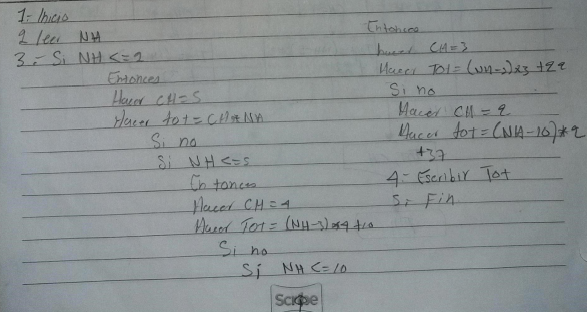 1- Inicio
2 leer NH
3.- Si NH <= 2
Entonces
Hacer CH=5
Hacer tot = CH*NH
Si no
Si NH <= 5
Entonces
Hacer CH=4
Hacer TOT = (NH-2)*4+10
Si no
Si NH <= 10
Entonces
hacer CH=3
Hacer TOT= (NH-5)*3 +22
Si no
Hacer CH = 2
Hacer tot = (NH-10)*2
+37
4- Escribir Tot
5- Fin
Scribe